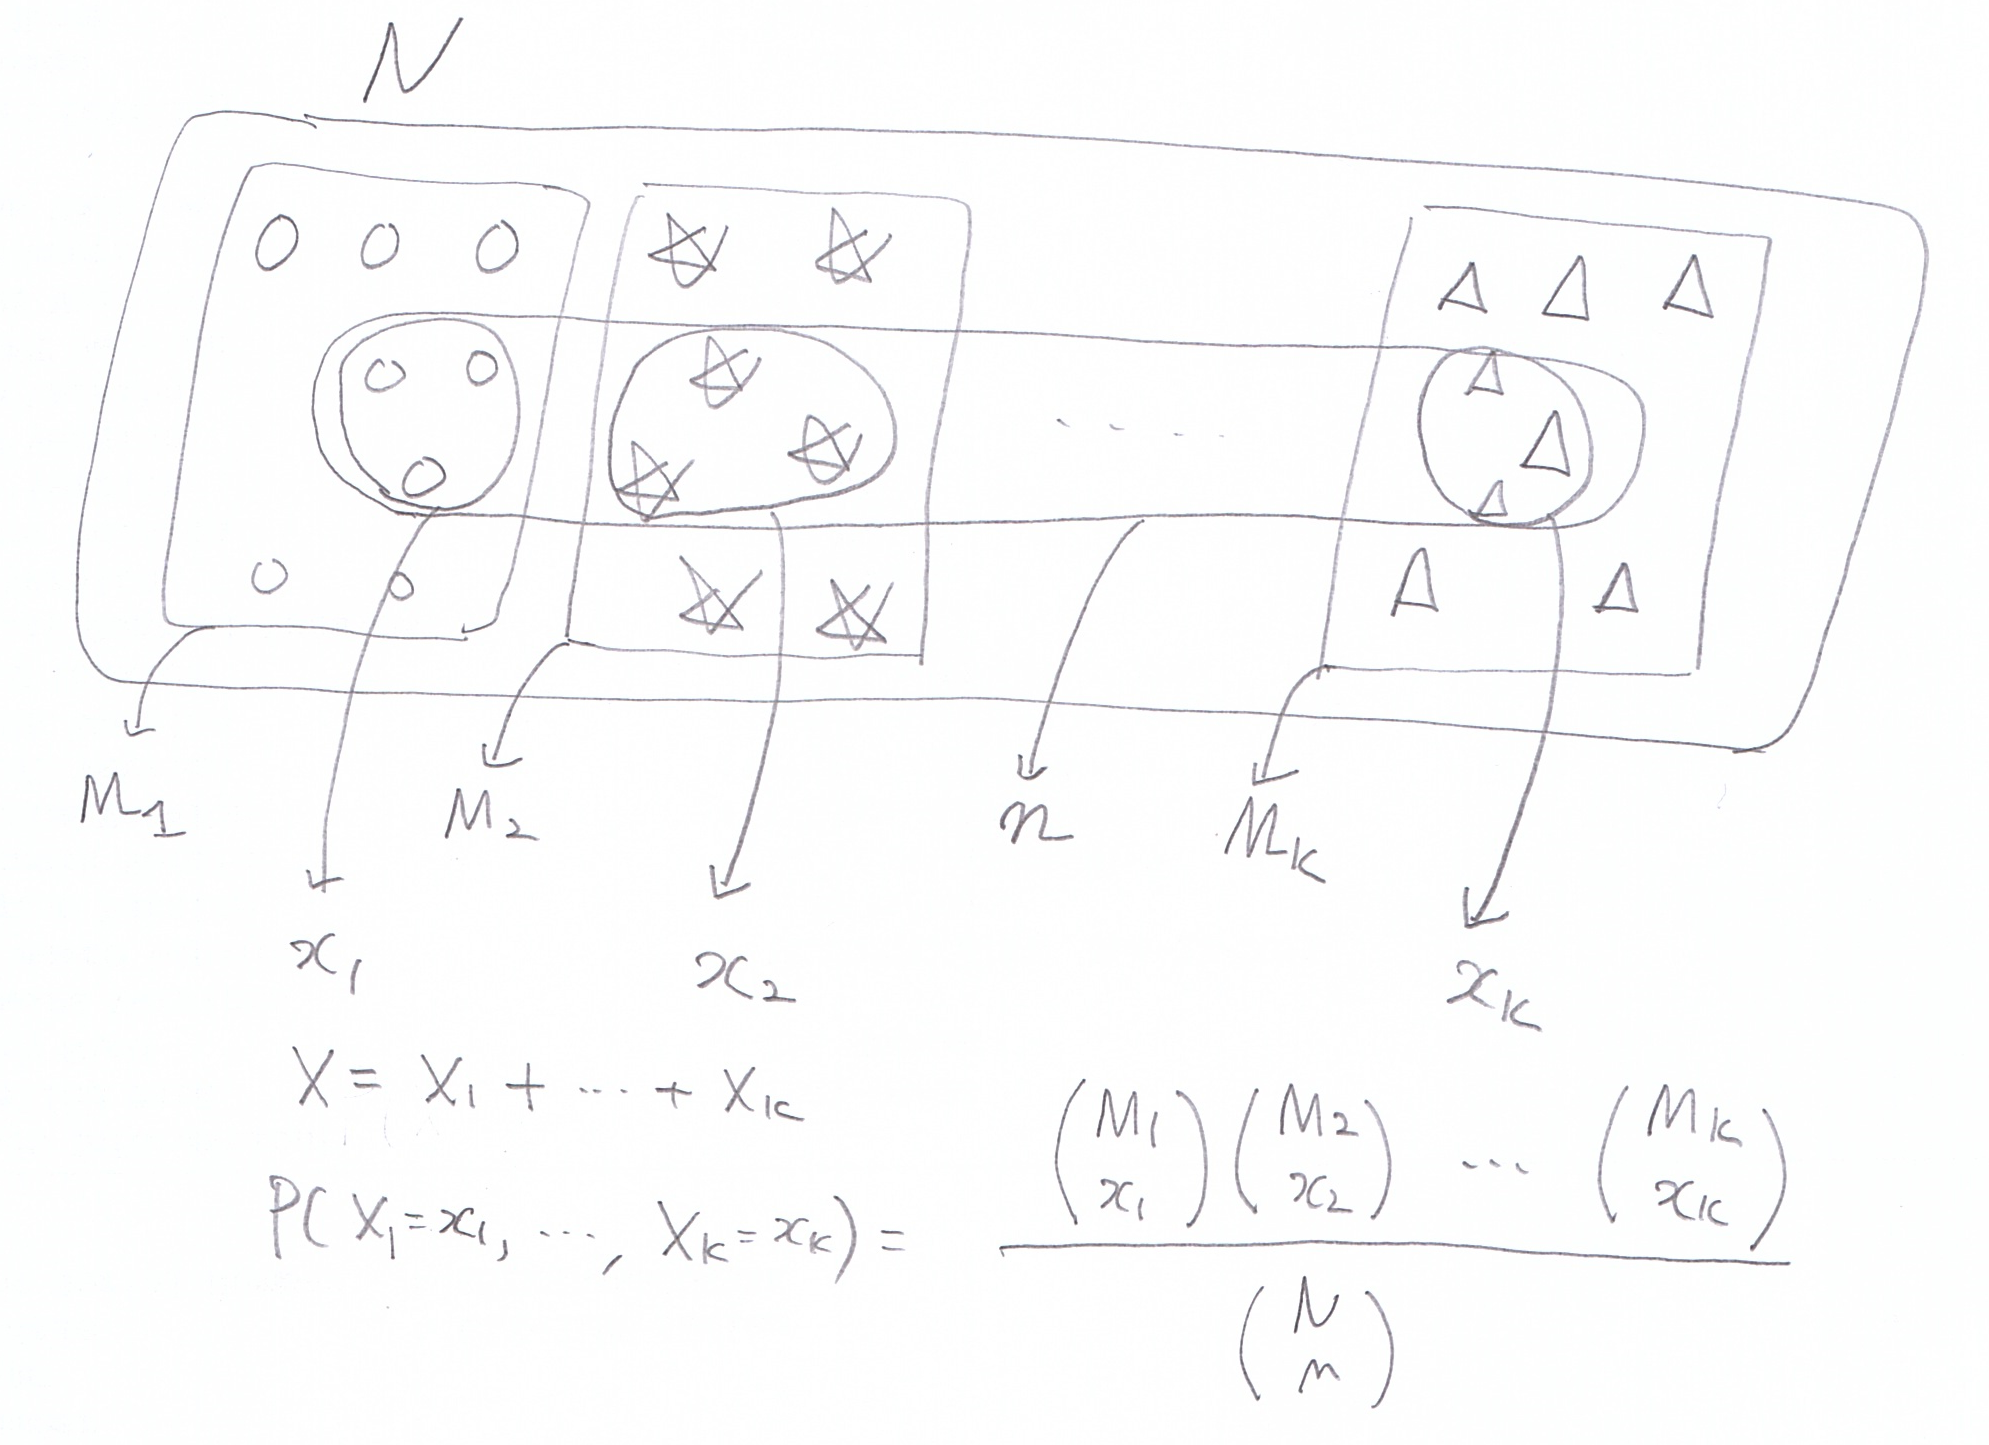 N
M1 M2 n Mk
x1 x2 xk
X = X1 + ... + Xk
P(X1=x1, ..., Xk=xk) = (M1 x1)(M2 x2) ... (Mk xk) / (N n)